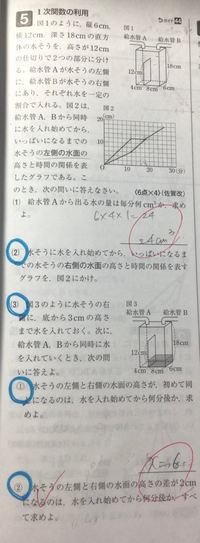 5 1次関数の利用
図1のように，縦6cm，
横12cm，深さ18cmの直方
体の水そうを，高さが12cm
の仕切りで2つの部分に分け
る。給水管Aが水そうの左側
に，給水管Bが水そうの右側
に，それぞれ水を一定の
割合で入れる。図2は，
給水管A，Bから同時
に水を入れ始めてから，
いっぱいになるまで
の水そうの左側の水面
の高さと時間の関係を表
したグラフである。こ
のとき，次の問いに答えなさい。
図1
給水管A 給水管B
12cm
18cm
4cm 8cm 6cm
図2
(cm)
20
10
0 10 20 30(分)
(6点×4)(佐賀改)
(1) 給水管Aから出る水の量は毎分何cm³か，求め
よ。
6×4×1=24
24cm³
(2) 水そうに水を入れ始めてから，いっぱいになるま
での水そうの右側の水面の高さと時間の関係を表す
グラフを，図2にかけ。
(3) 図3のように水そうの右
側に，底から3cmの高さ
まで水を入れておく。次に，
給水管A，Bから同時に水
を入れていくとき，次の問
いに答えよ。
図3
給水管A 給水管B
12cm
18cm
4cm 8cm 6cm
① 水そうの左側と右側の水面の高さが，初めて同
じになるのは，水を入れ始めてから何分後か，求
めよ。
② 水そうの左側と右側の水面の高さの差が2cm
になるのは，水を入れ始めてから何分後か，すべ
て求めよ。